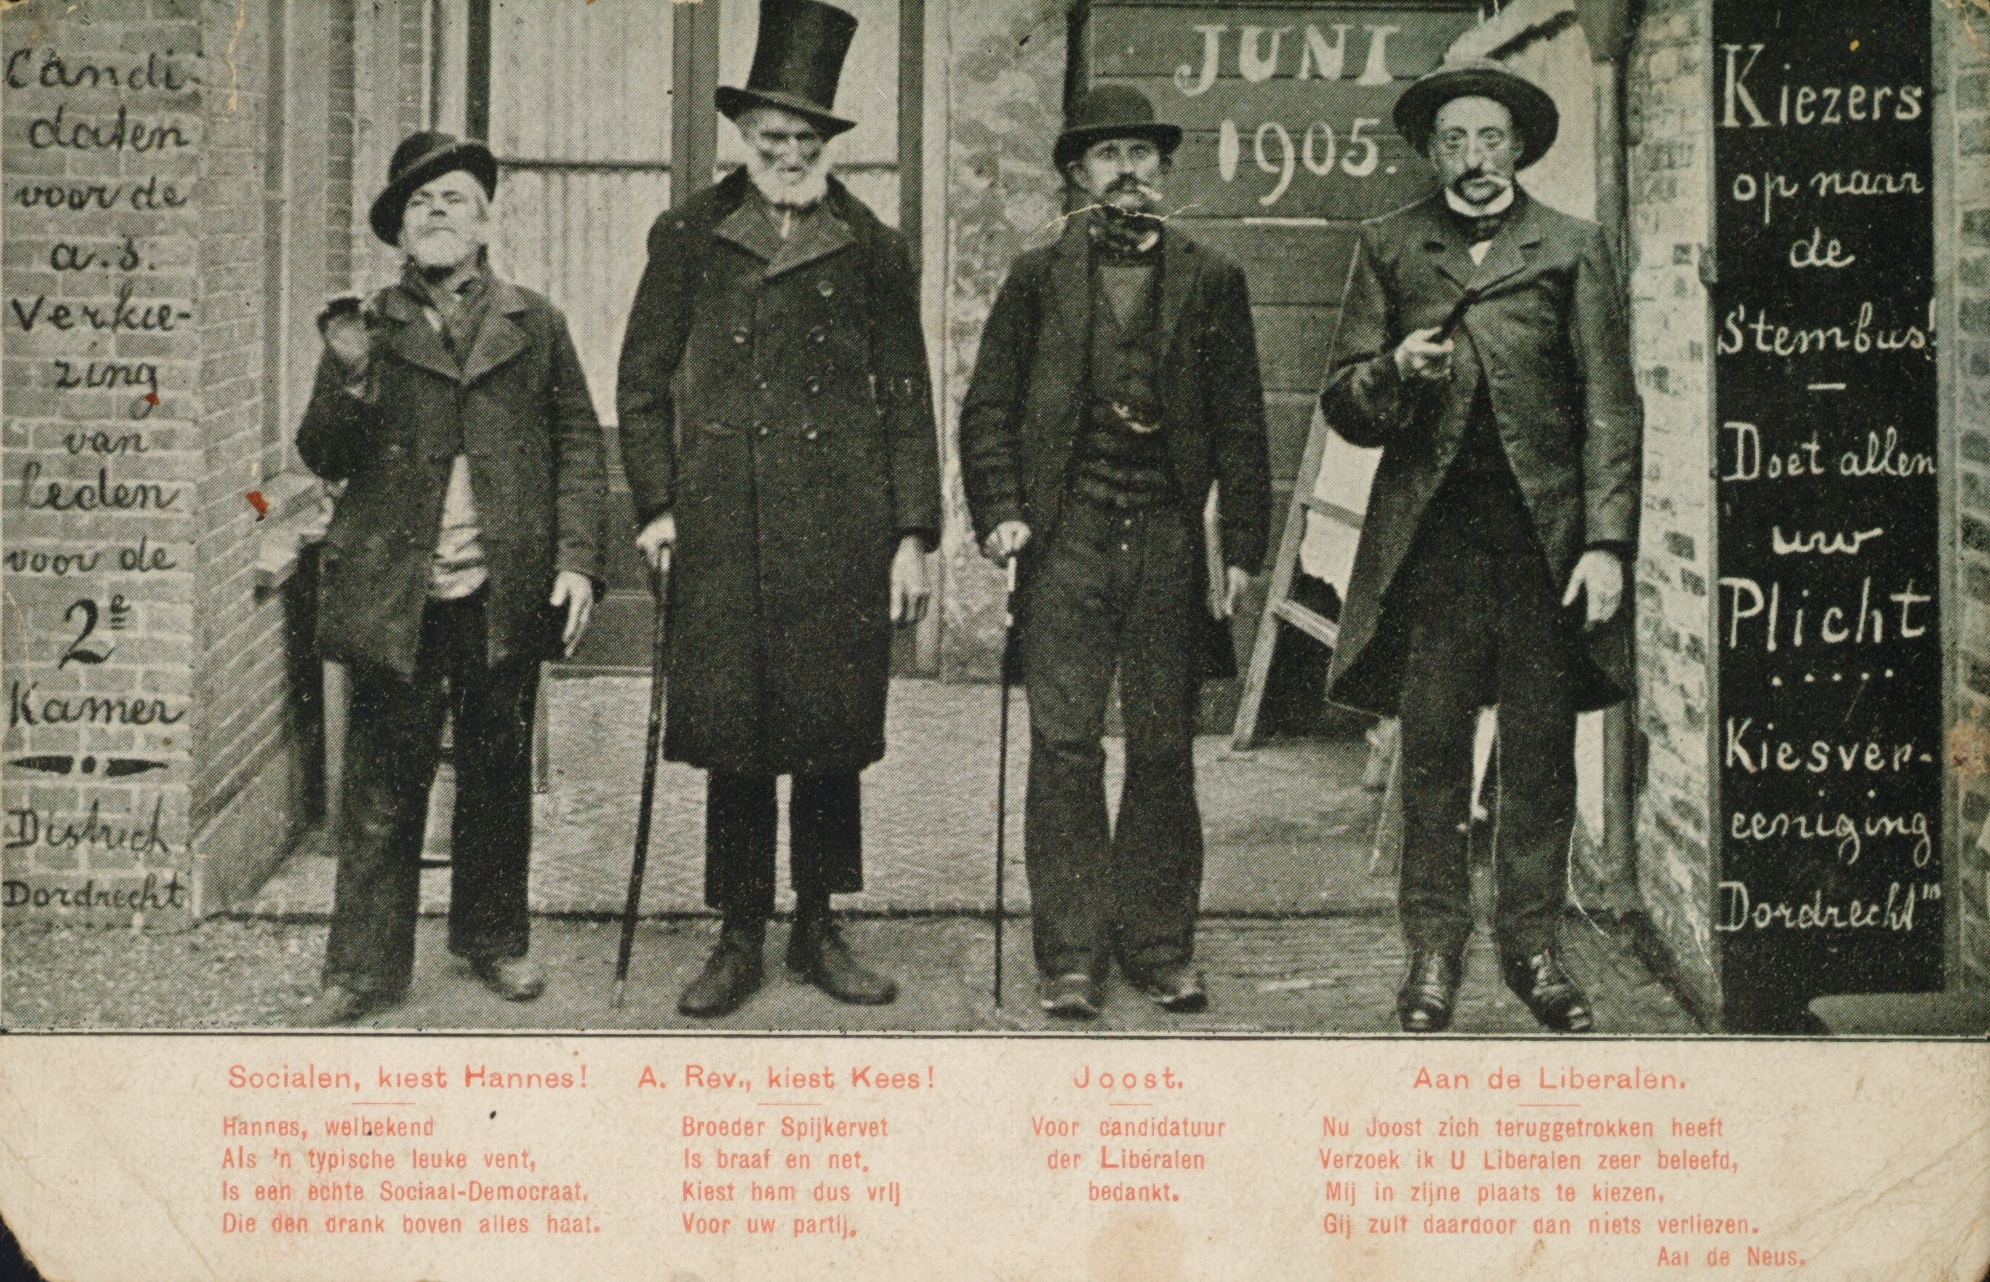 Candi-
daten
voor de
a.s.
Verkie-
zing
van
leden
voor de
2e
Kamer
District
Dordrecht
JUNI
1905.
Kiezers
op naar
de
Stembus!
—
Doet allen
uw
Plicht
.....
Kiesver-
eeniging
Dordrecht"
Socialen, kiest Hannes!
Hannes, welbekend
Als 'n typische leuke vent,
Is een echte Sociaal-Democraat,
Die den drank boven alles haat.
A. Rev., kiest Kees!
Broeder Spijkervet
Is braaf en net,
Kiest hem dus vrij
Voor uw partij.
Joost.
Voor candidatuur
der Liberalen
bedankt.
Aan de Liberalen.
Nu Joost zich teruggetrokken heeft
Verzoek ik U Liberalen zeer beleefd,
Mij in zijne plaats te kiezen,
Gij zult daardoor dan niets verliezen.
Aai de Neus.